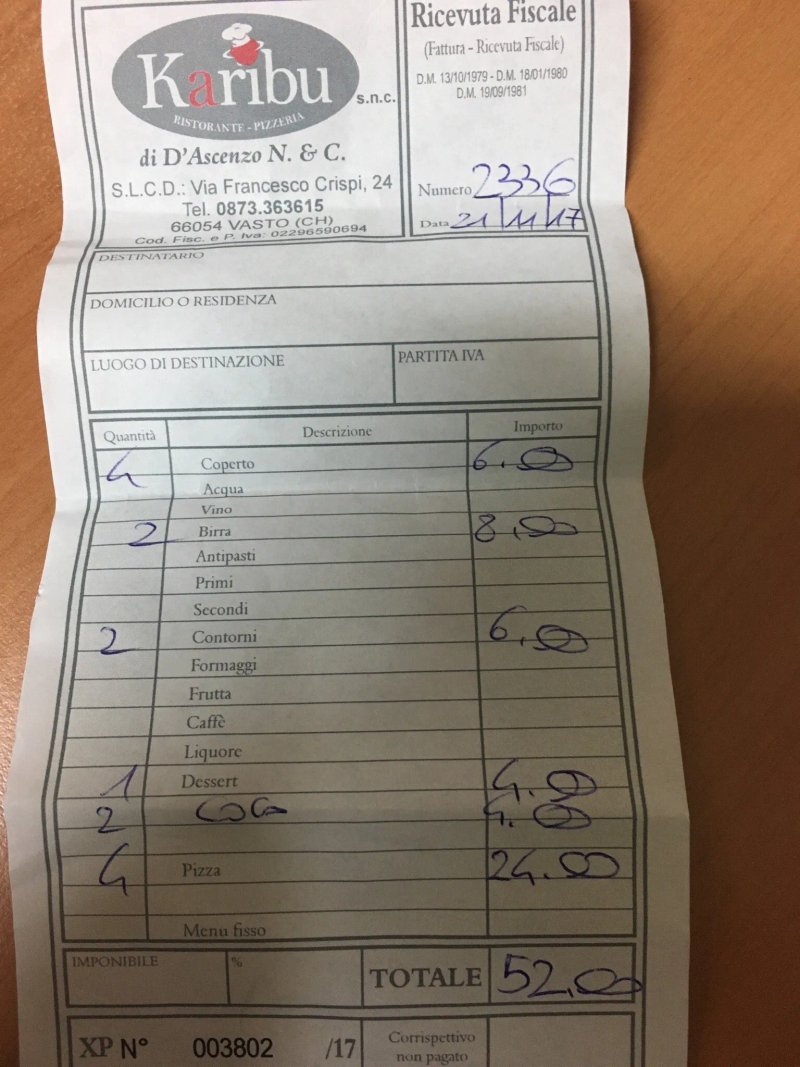 Karibu s.n.c.
RISTORANTE - PIZZERIA
di D'Ascenzo N. & C.
S.L.C.D.: Via Francesco Crispi, 24
Tel. 0873.363615
66054 VASTO (CH)
Cod. Fisc. e P. Iva: 02296590694
Ricevuta Fiscale
(Fattura - Ricevuta Fiscale)
D.M. 13/10/1979 - D.M. 18/01/1980
D.M. 19/09/1981
Numero 2336
Data 21 11 17
DESTINATARIO
DOMICILIO O RESIDENZA
LUOGO DI DESTINAZIONE PARTITA IVA
Quantità Descrizione Importo
4 Coperto 6,00
Acqua
Vino
2 Birra 8,00
Antipasti
Primi
Secondi
2 Contorni 6,00
Formaggi
Frutta
Caffè
Liquore
1 Dessert 4.00
2 COCA 4.00
4 Pizza 24.00
Menu fisso
IMPONIBILE % TOTALE 52,00
XP N° 003802 /17 Corrispettivo
non pagato